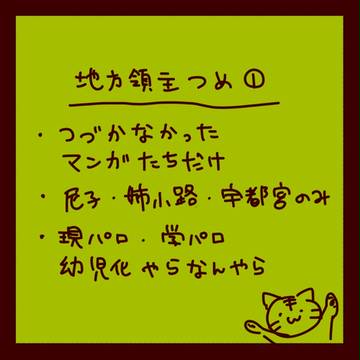 地方領主つめ①
・つづかなかった
マンガたちだけ
・尼子・姉小路・宇都宮のみ
・現パロ・学パロ
幼児化やらなんやら